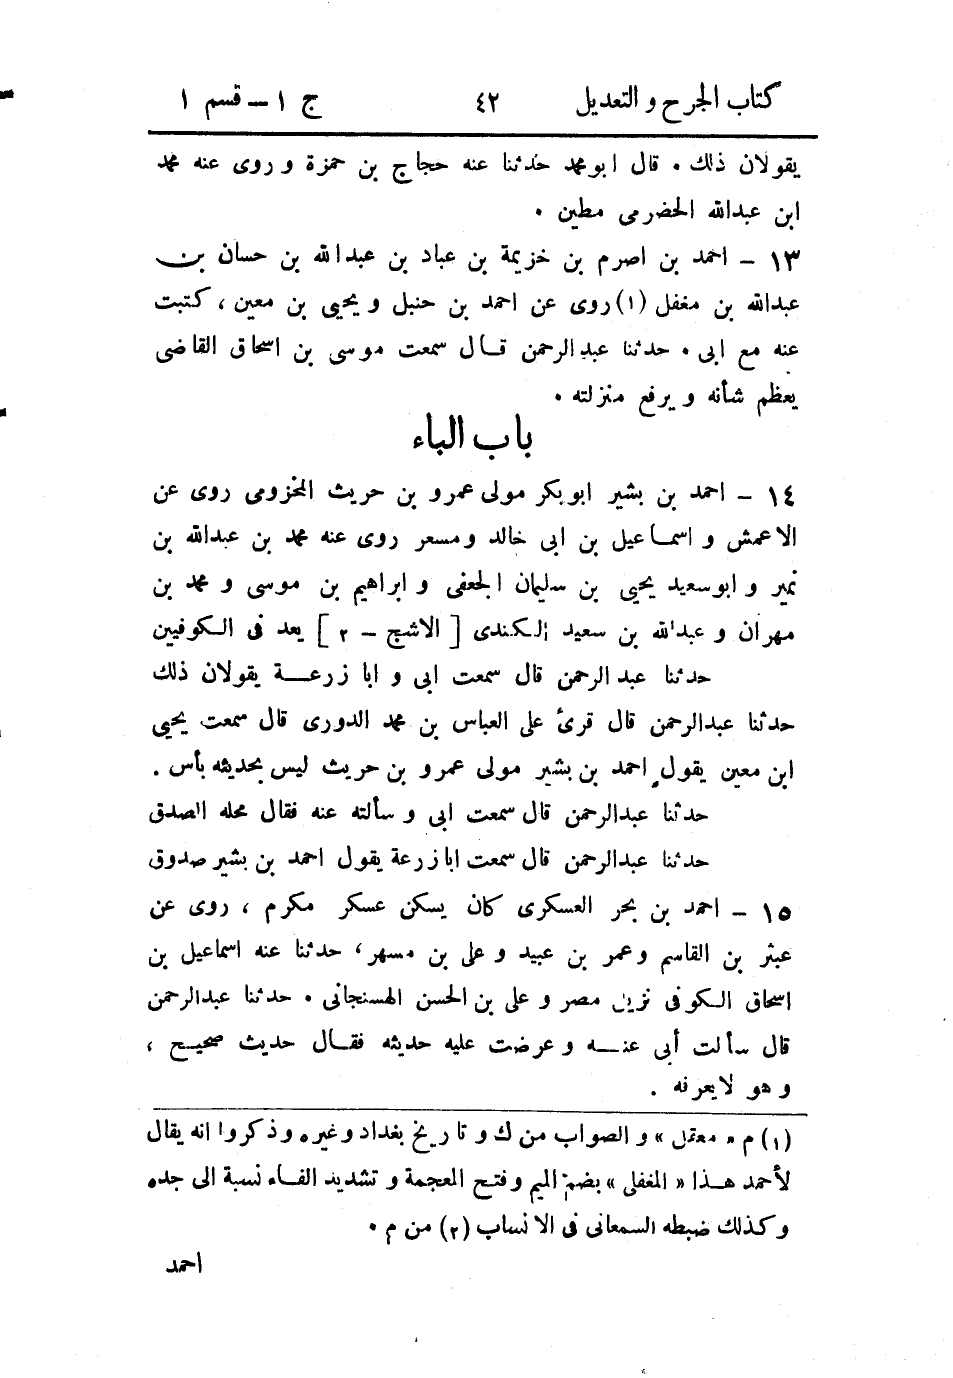 كتاب الجرح و التعديل ٤٢ ج ١ – قسم ١
يقولان ذلك ٠ قال ابومحمد حدثنا عنه حجاج بن حمزة و روى عنه محمد
ابن عبدالله الحضرمى مطين ٠
١٣ – احمد بن اصرم بن خزيمة بن عباد بن عبدالله بن حسان بن
عبدالله بن مغفل (١) روى عن احمد بن حنبل و يحيى بن معين ، كتبت
عنه مع ابى ٠ حدثنا عبدالرحمن قال سمعت موسى بن اسحاق القاضى
يعظم شأنه و يرفع منزلته ٠
باب الباء
١٤ – احمد بن بشير ابوبكر مولى عمرو بن حريث المخزومى روى عن
الاعمش و اسماعيل بن ابى خالد ومسعر روى عنه محمد بن عبدالله بن
نمير و ابوسعيد يحيى بن سليمان الجعفى و ابراهيم بن موسى و محمد بن
مهران و عبدالله بن سعيد الكندى [ الاشج – ٢ ] يعد فى الكوفيين
حدثنا عبد الرحمن قال سمعت ابى و ابا زرعة يقولان ذلك
حدثنا عبدالرحمن قال قرئ على العباس بن محمد الدورى قال سمعت يحيى
ابن معين يقول احمد بن بشير مولى عمرو بن حريث ليس بحديثه بأس .
حدثنا عبدالرحمن قال سمعت ابى و سألته عنه فقال محله الصدق
حدثنا عبدالرحمن قال سمعت ابا زرعة يقول احمد بن بشير صدوق
١٥ – احمد بن بحر العسكرى كان يسكن عسكر مكرم ، روى عن
عبثر بن القاسم وعمر بن عبيد و على بن مسهر، حدثنا عنه اسماعيل بن
اسحاق الكوفى نزيل مصر و على بن الحسن الهسنجانى ٠ حدثنا عبدالرحمن
قال سألت أبى عنه و عرضت عليه حديثه فقال حديث صحيح ،
و هو لايعرفه .
(١) م « معقل » و الصواب من ك و تاريخ بغداد وغيره وذكروا انه يقال
لأحمد هذا « المغفلى » بضم الميم وفتح المعجمة و تشديد الفاء نسبة الى جده
و كذلك ضبطه السمعانى فى الانساب (٢) من م ٠
احمد